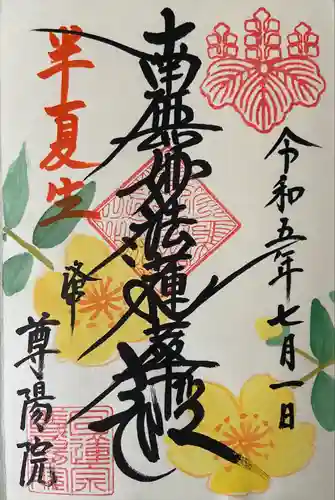 令和五年七月一日
南無妙法蓮華経
半夏生
奉
尊陽院